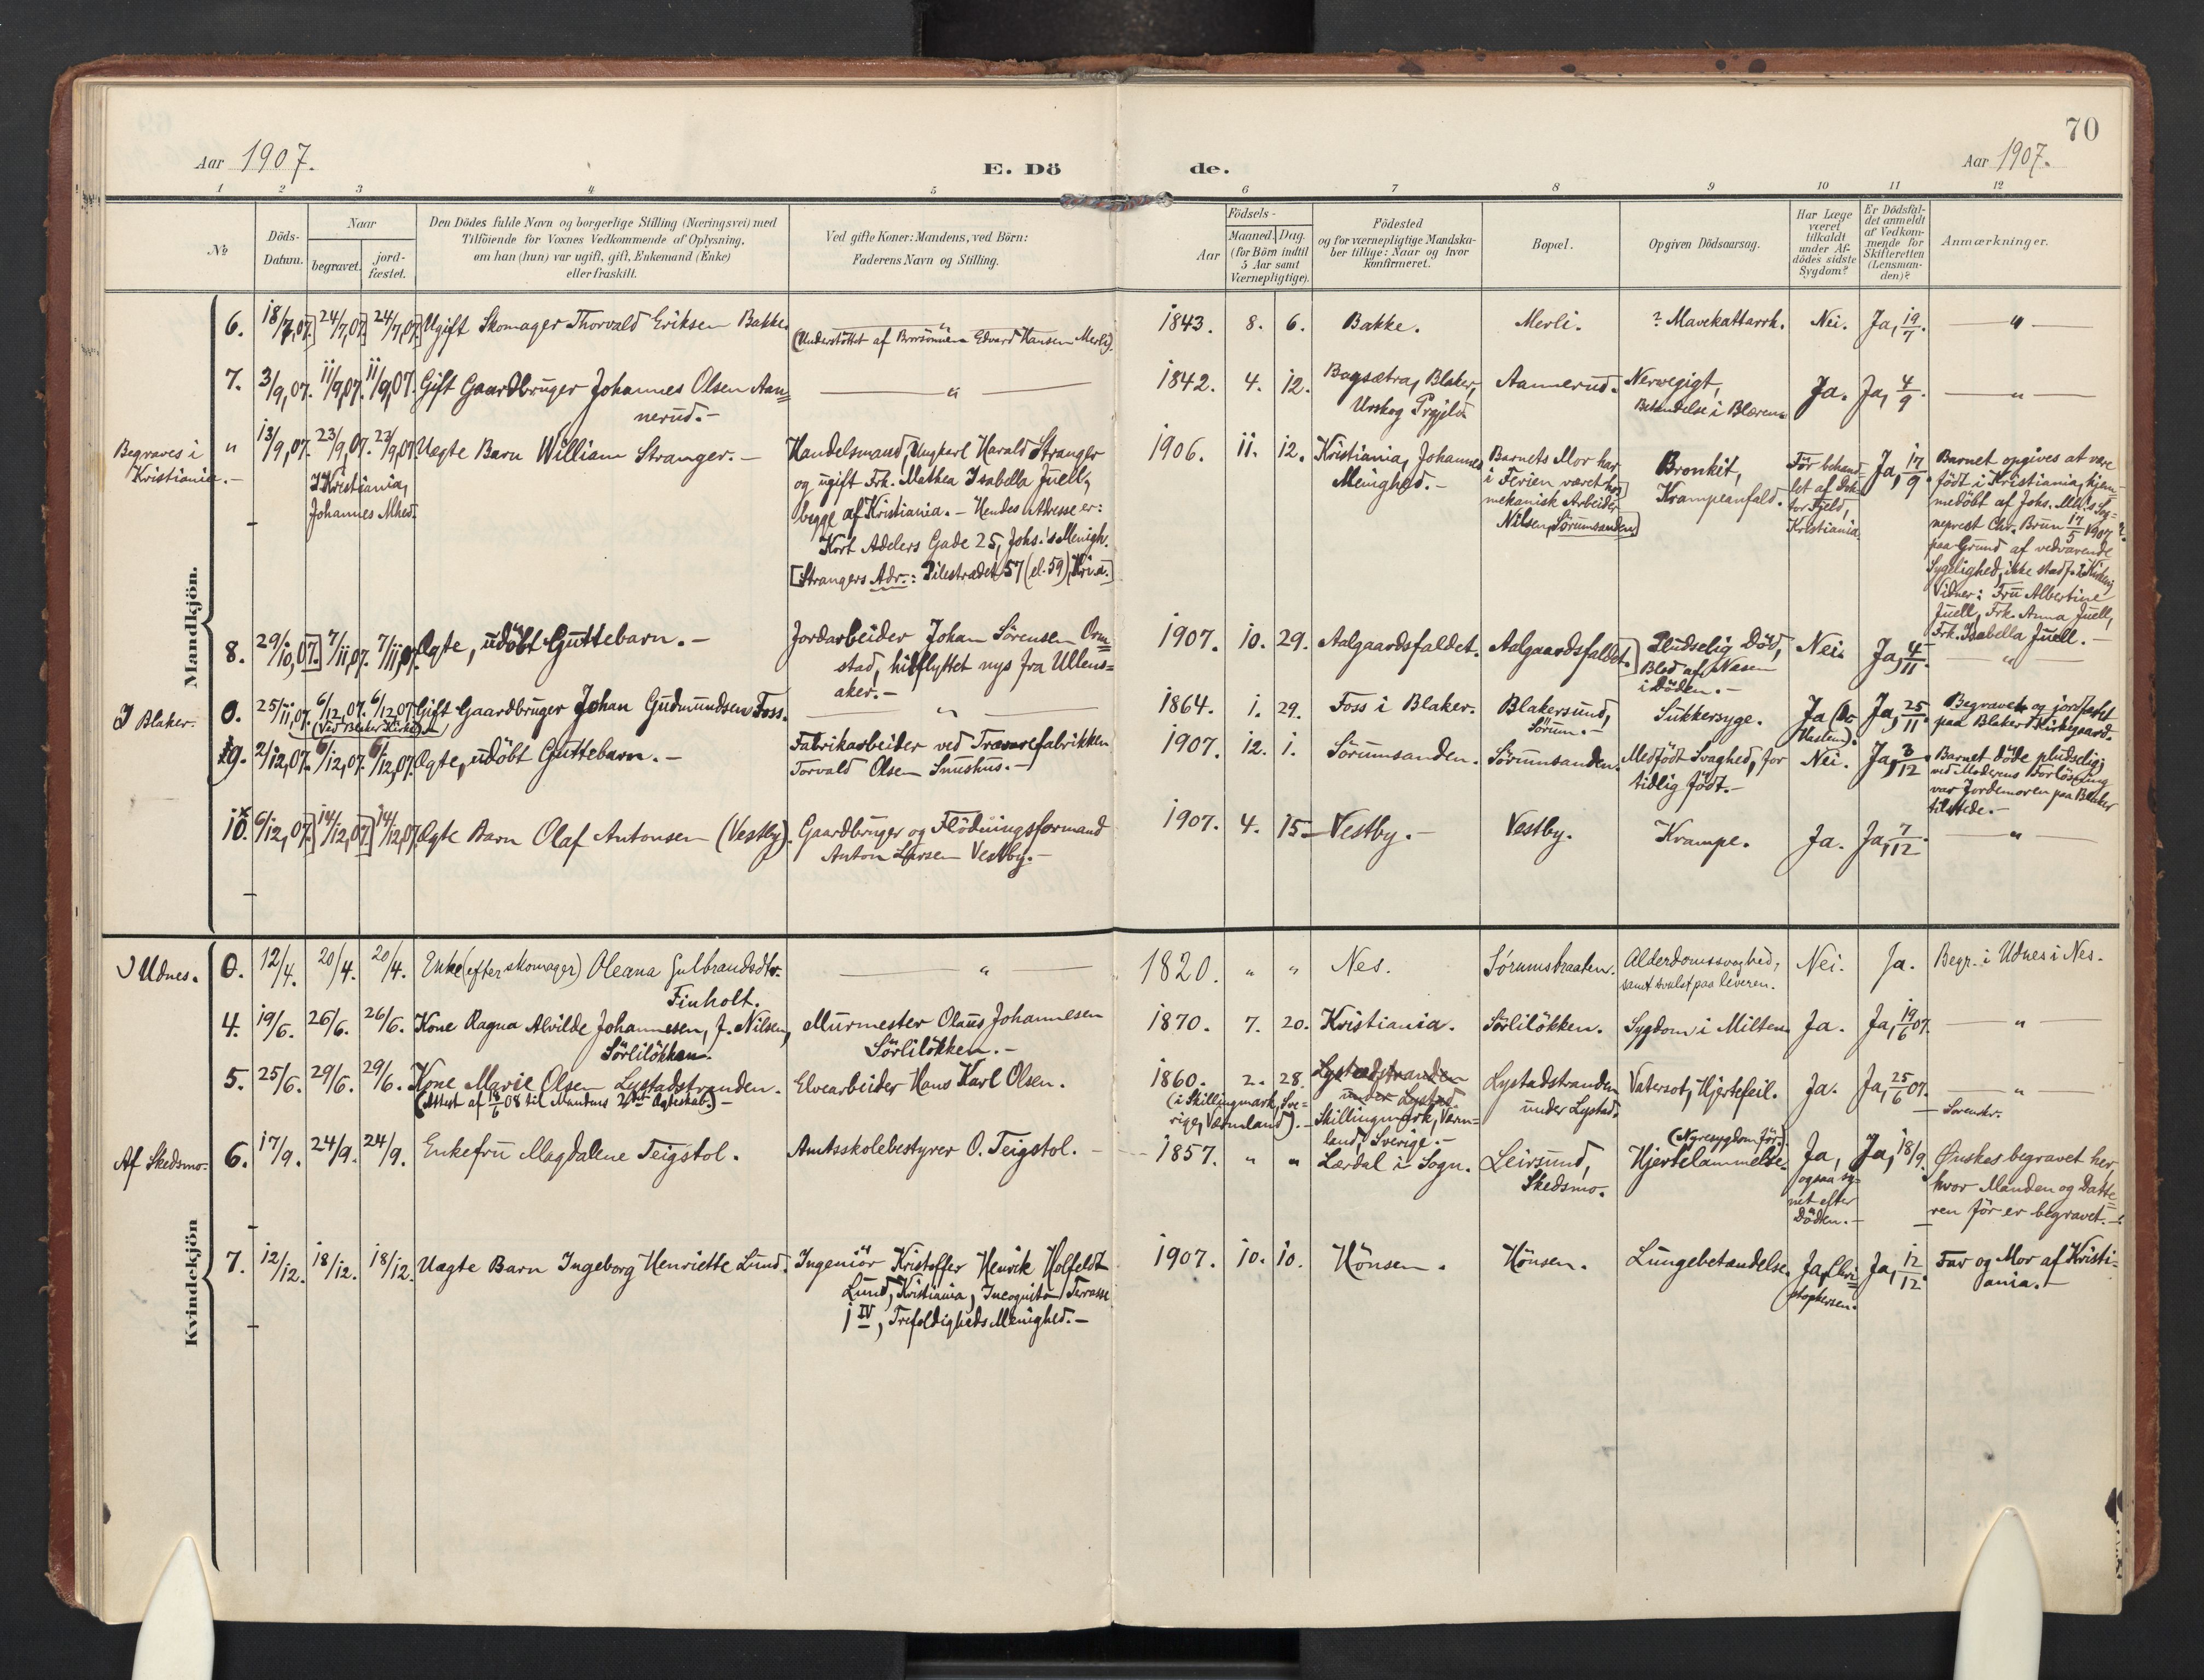 70
Aar 1907.
E. Döde.
Aar 1907.
1 2 3 4 5 6 7 8 9 10 11 12
No
Döds-
Datum.
Naar
begravet.
jord-
fæstet.
Den Dödes fulde Navn og borgerlige Stilling (Næringsvei) med
Tilföiende for Voxnes Vedkommende af Oplysning,
om han (hun) var ugift, gift, Enkemand (Enke)
eller fraskilt.
Ved gifte Koner: Mandens, ved Börn:
Faderens Navn og Stilling.
Födsels-
Aar
Maaned.
Dag.
(for Börn indtil
5 Aar samt
Værnepligtige).
Födested
og for værnepligtige Mandska-
ber tillige: Naar og hvor
konfirmeret.
Bopæl.
Opgiven Dödsaarsag.
Har Læge
været
tilkaldt
under Af-
dödes sidste
Sygdom?
Er Dödsfal-
det anmeldt
af Vedkom-
mende for
Skifteretten
(Lensman-
den)?
Anmærkninger.
Mandkjön.
6. 18/7,07. 24/7,07. 24/7,07. Ugift Skomager Thorvald Eriksen Bakke.
"
(Understöttet af Brorsönnen Edvard Hansen Merli).
1843. 8. 6. Bakke. Merli. ? Mavekattarrh. Nei. Ja, 19/7. "
7. 3/9,07. 11/9,07. 11/9,07. Gift Gaardbruger Johannes Olsen Aan=
nerud.-
"
1842. 4. 12. Bagsætra, Blaker,
Urskog Prgjld.
Aannerud. Nervegigt,
Betændelse i Blæren.
Ja. Ja, 4/9. "
Begraves i
Kristiania.-
" 13/9,07. 23/9,07. 23/9,07. Uægte Barn William Stranger.-
I Kristiania,
Johannes Mhed.
Handelsmand, Ungkarl Harald Stranger
og ugift Frk. Mathea Isabella Juell,
begge af Kristiania.- Hendes Adresse er:
Kort Adelers Gade 25, Johs.'s Menigh.
[Strangers Adr.: Pilestrædet 57 (el. 59) Kr.a.]
1906. 11. 12. Kristiania, Johannes
Menighed.-
Barnets Mor har
i Ferien været hos
mekanisk Arbeider
Nilsen, Sörumsanden.
Bronkit,
Krampeanfald.
Før behand-
let af Dok-
tor Fjeld,
Kristiania.
Ja, 17/9.
Barnet opgives at være
født i Kristiania, hjem-
medöbt af Johs. Mh.'s Sog-
neprest Chr. Brun 17/5 1907
paa Grund af vedvarende
Sygelighed, ikke stadf. i Kirken,
Vidner: Fru Albertine
Juell, Frk. Anna Juell,
Frk. Isabella Juell.-
8. 29/10,07. 7/11,07. 7/11,07. Ægte, udöbt Guttebarn.-
Jordarbeider Johan Sörensen Orm=
stad, hidflyttet nys fra Ullens=
aker.-
1907. 10. 29. Aalgaardsfaldet. Aalgaardsfaldet. Pludselig Död,
Blod af Næsen
i Döden.-
Nei. Ja, 4/11. "
I Blaker.
0. 25/11,07. 6/12,07. 6/12,07. Gift Gaardbruger Johan Gudmundsen Foss.
(Ved Blaker Kirke)
"
1864. 1. 29. Foss i Blaker. Blakersund,
Sörum.-
Sukkersyge. Ja (Dr.
Vasten). Ja, 25/11.
Begravet og jordfæstet
paa Blaker Kirkegaard.
9. 2/12,07. 6/12,07. 6/12,07. Ægte, udöbt Guttebarn.-
Fabrikarbeider ved Trævarefabrikken
Torvald Olsen Snushus.-
1907. 12. 1. Sörumsanden. Sörumsanden. Medfödt Svaghed, for
tidlig födt.-
Nei. Ja, 3/12
Barnet döde pludselig;
ved Moderens Forlösning
var Jordemoren paa Blaker
tilstede.-
10. 6/12,07. 14/12,07. 14/12,07. Ægte Barn Olaf Antonsen (Vestby).
Gaardbruger og Flödningsformand
Anton Larsen Vestby.-
1907. 4. 15. Vestby.- Vestby. Krampe. Ja. Ja, 7/12 "
Kvindekjön
I Udnes.
0. 12/4. 20/4. 20/4. Enke (efter skomager) Oleana Gulbrandsdtr.
Finholt.
"
1820. " " Nes. Sörumsbraaten. Alderdomssvaghed,
samt svulst paa leveren.
Nei. Ja. Begr. i Udnes i Nes.
4. 19/6. 26/6. 26/6. Kone Ragna Alvilde Johannesen, f. Nilsen,
Sörlilökken.
Murmester Olaus Johannesen
Sörlilökken.-
1870. 7. 20. Kristiania. Sörlilökken. Sygdom i Milten. Ja. Ja, 19/6 07. "
5. 25/6. 29/6. 29/6. Kone Marie Olsen Lystadstranden.
(Attest af 18/6 08 til Mandens 2det Ægteskab.)-
Elvearbeider Hans Karl Olsen.
1860. 2. 28.
(i Skillingmark, Sve-
rige, Værmland).-
Lystadstranden
under Lystad
Skillingmark, Værm-
land, Sverige.-
Lystadstranden
under Lystad.
Vatersot, Hjertefeil. Ja. Ja, 25/6 07. "
Svensk.
Af Skedsmo.
6. 17/9. 24/9. 24/9. Enkefru Magdalene Teigstol.
Amtsskolebestyrer O. Teigstol.
1857. " " Lærdal i Sogn. Leirsund,
Skedsmo.
(Nyresygdom för)
Hjertelammelse.
Ja,
ogsaa sy-
net efter
Döden.-
Ja, 18/9.
Ønskes begravet her,
hvor Manden og Datte=
ren för er begravet.-
7. 12/12. 18/12. 18/12. Uægte Barn Ingeborg Henriette Lund.
Ingeniör Kristoffer Henrik Holfeldt
Lund, Kristiania, Incognito Terrasse
1 IV, Trefoldigheds Menighed.-
1907. 10. 10. Hönsen. Hönsen. Lungebetændelse. Ja, Chri=
stophersen.
Ja, 12/12.
Far og Mor af Kristi-
ania.-